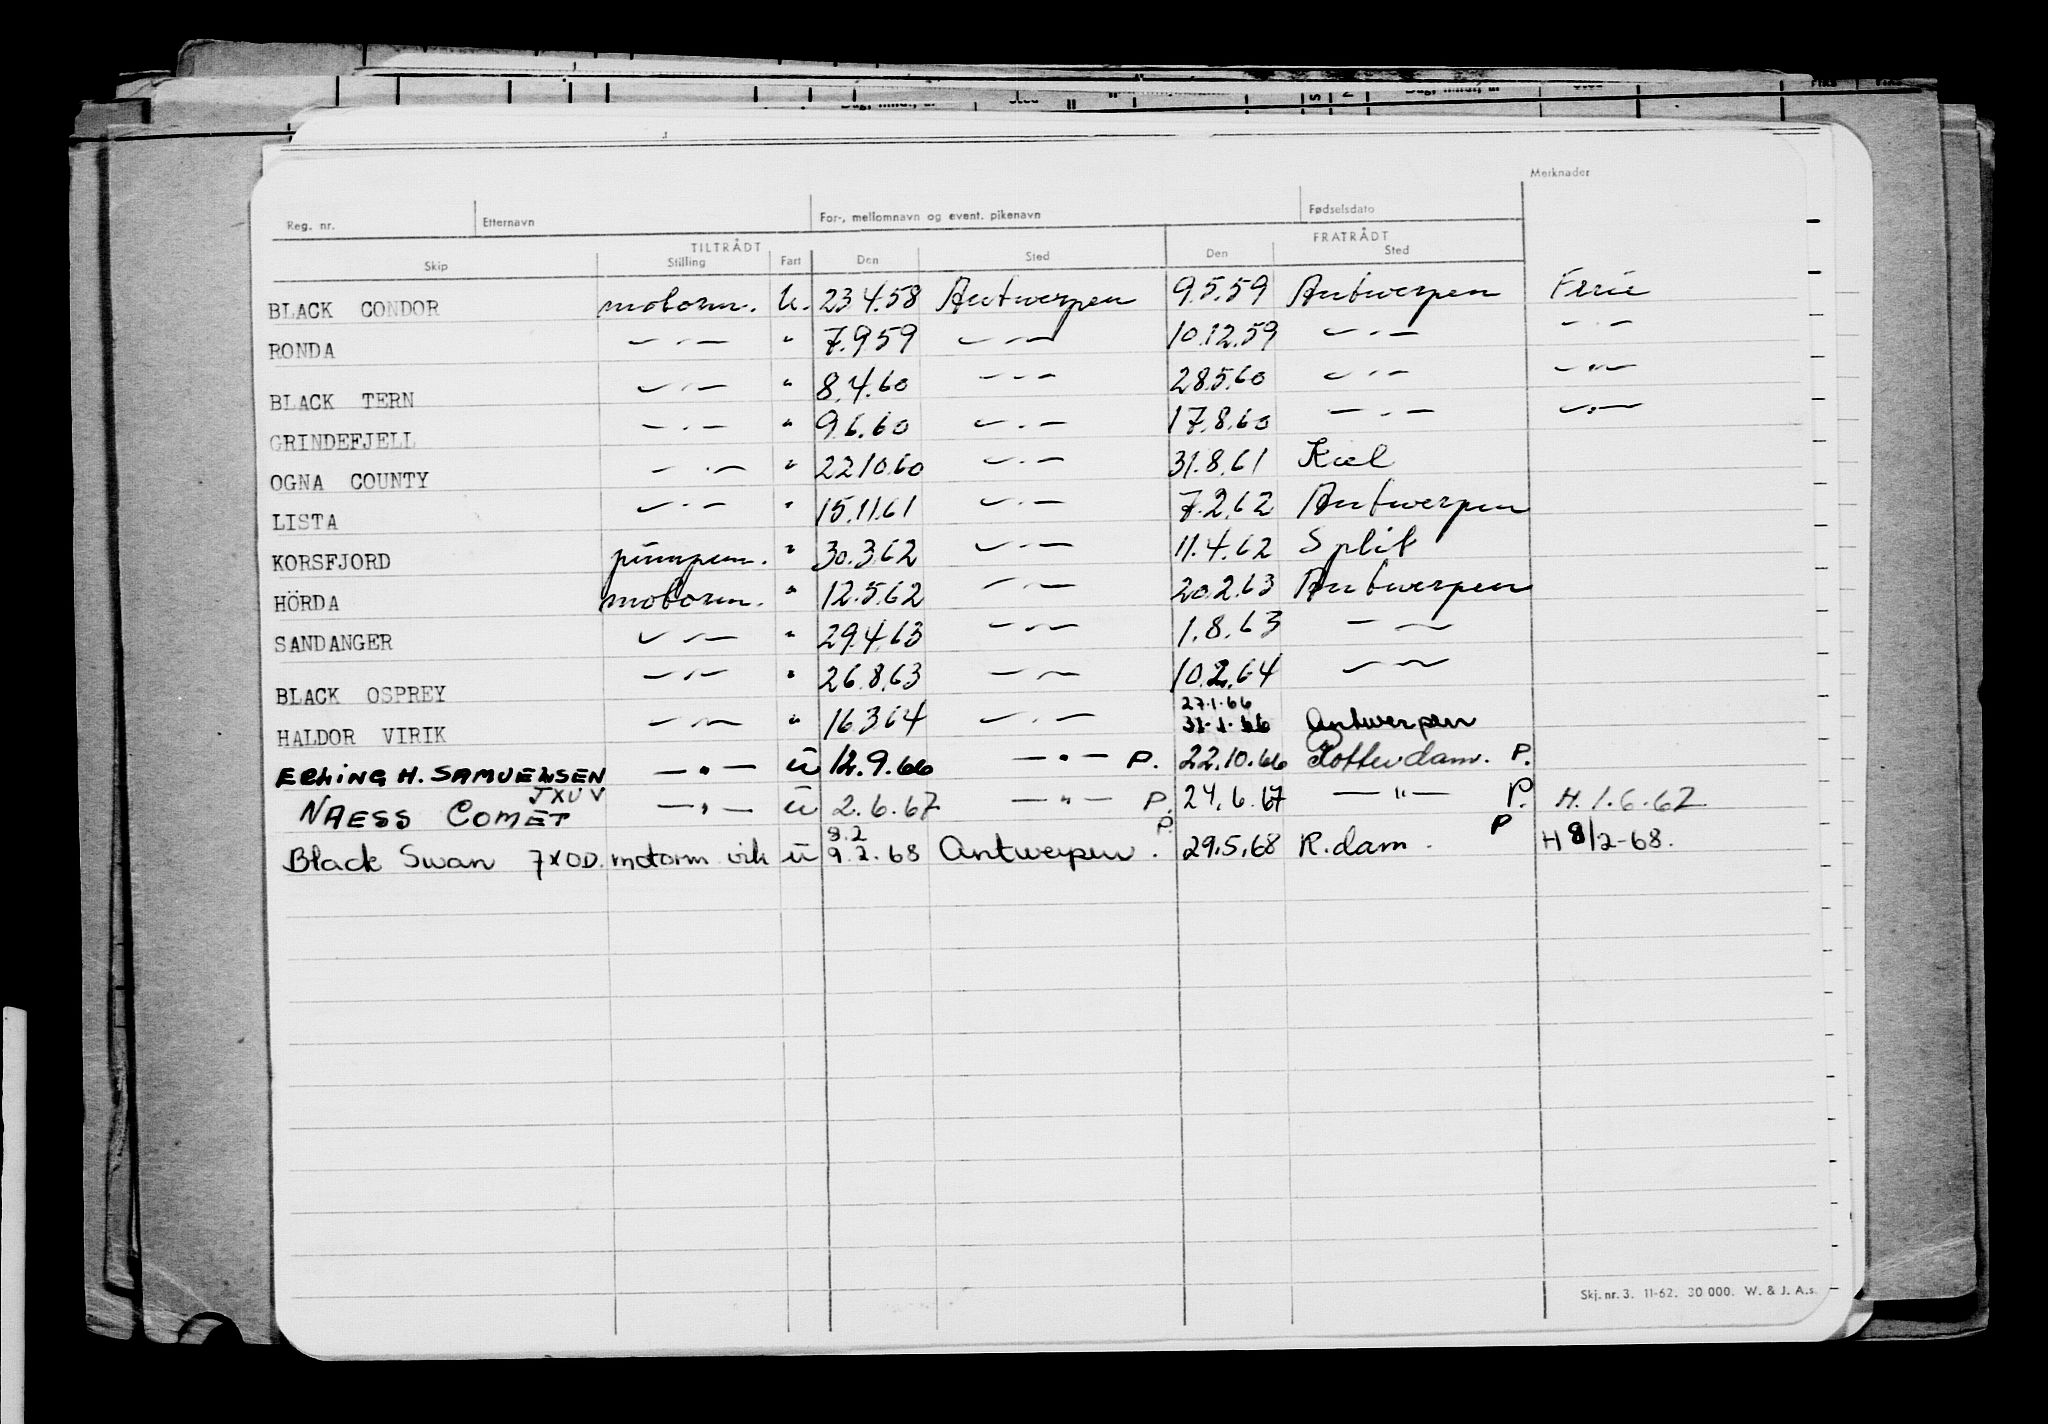 Merknader
Reg. nr. Etternavn For-, mellomnavn og event. pikenavn Fødselsdato
TILTRÅDT FRATRÅDT
Skip Stilling Fart Den Sted Den Sted
BLACK CONDOR motorm. U. 23 4.58 Antwerpen 9.5.59 Antwerpen Ferie
RONDA — " — " 7.9 59 — " — 10.12.59 — " — — " —
BLACK TERN — " — " 8.4.60 — " — 28.5.60 — " — — " —
GRINDEFJELL — " — " 9.6.60 — " — 17.8.60 — " — — " —
OGNA COUNTY — " — " 22.10.60 — " — 31.8.61 Kiel
LISTA — " — " 15.11.61 — " — 7.2.62 Antwerpen
KORSFJORD pumpem. " 30.3.62 — " — 11.4.62 Split
HÖRDA motorm. " 12.5.62 — " — 20.2.63 Antwerpen
SANDANGER — " — " 29.4.63 — " — 1.8.63 — " —
BLACK OSPREY — " — " 26.8.63 — " — 10.2.64 — " —
27.1.66
HALDOR VIRIK — " — " 16 3 64 — " — 31.1.66 Antwerpen
ERLING H. SAMUELSEN — " — u 12.9.66 — " — P. 22.10.66 Rotterdam. P.
JXUV
NAESS COMET — " — u 2.6.67 — " — P. 24.6.67 — " — P. H. 1.6.67
8.2 P. P
Black Swan JXOD. motorm vik u 9.2.68 Antwerpen. 29.5.68 R.dam. H 8/2-68.
Skj. nr. 3. 11-62. 30 000. W. & J. A.s.